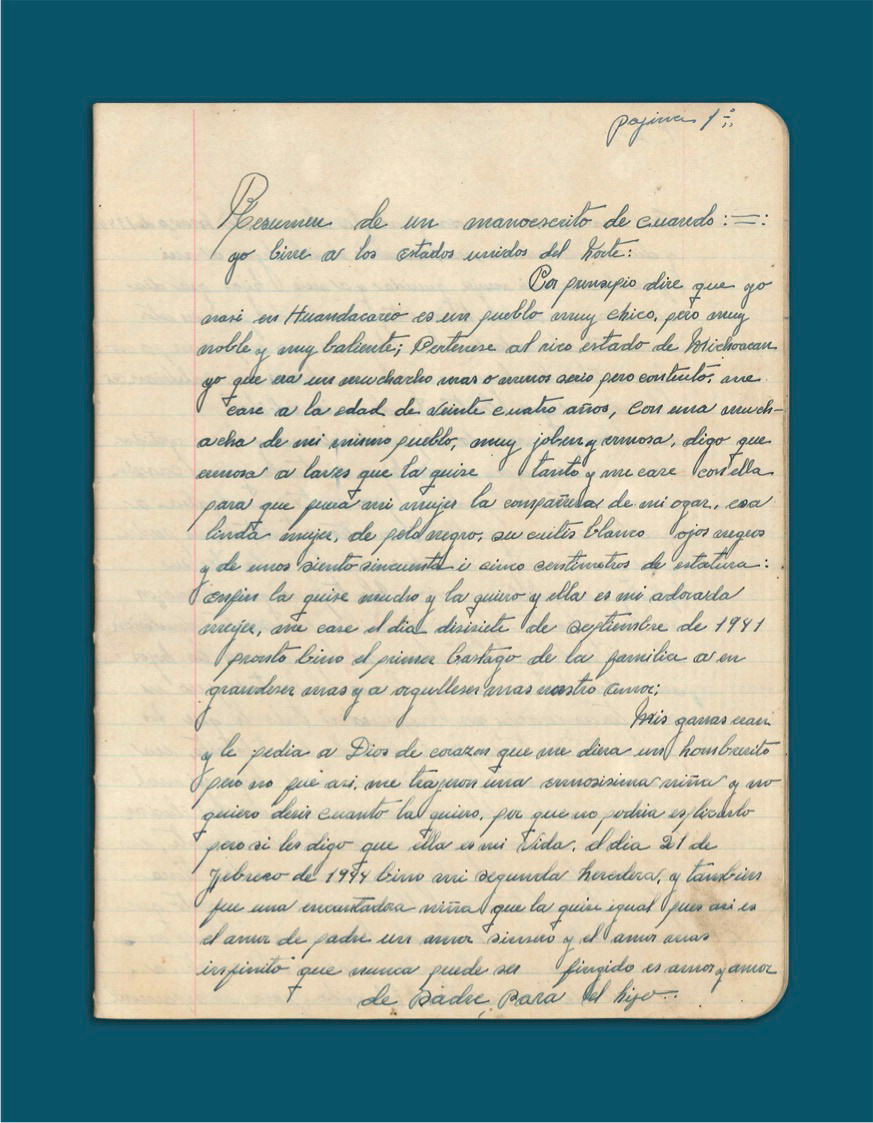 pagina 1ª;;
Resumen de un manoescrito de cuando :=:
yo bine a los estados unidos del Norte:
Por prinsipio dire que yo
nasi en Huandacareo es un pueblo muy chico, pero muy
noble y muy baliente; Pertenese al rico estado de Michoacan
yo que era un muchacho mas o menos serio pero contento, me
case a la edad de veinte cuatro años, con una much-
acha de mi mismo pueblo, muy joben y ermosa, digo que
ermosa a la vez que la quise tanto y me case con ella
para que fuera mi mujer la compañera de mi ogar, esa
linda mujer, de pelo negro, su cutis blanco ojos negros
y de unos siento sincuenta i cinco centimetros de estatura:
enfin la quise mucho y la quiero y ella es mi adorada
mujer, me case el dia disisiete de septiembre de 1941
pronto bino el primer bastago de la familia a en
grandeser mas y a orgulleser mas nuestro amor;
Mis ganas eran
y le pedia a Dios de corazon que me diera un hombresito
pero no fue asi, me trajeron una ermosisima niña y no
quiero desir cuanto la quiero, por que no podria esplicarlo
pero si les digo que ella es mi vida, el dia 21 de
Febrero de 1944 bino mi segunda heredera, y tambien
fue una encantadora niña que la quise igual pues asi es
el amor de padre un amor sinsero y el amor mas
infinito que nunca puede ser fingido es amor y amor
de Padre, Para el hijo..